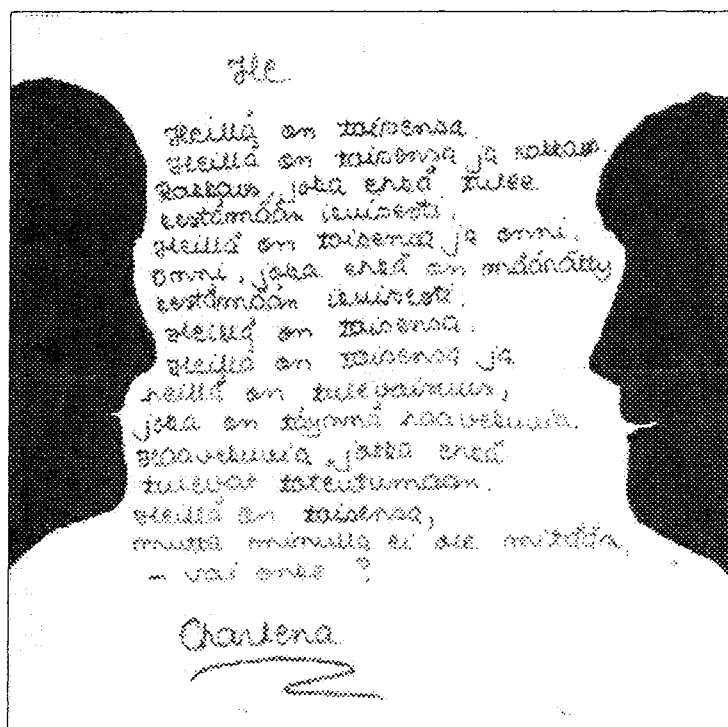 He
Heillä on toisensa.
Heillä on toisensa ja rakkaus.
Rakkaus, joka ehkä tulee
kestämään ikuisesti.
Heillä on toisensa ja onni.
Onni, joka ehkä on määrätty
kestämään ikuisesti.
Heillä on toisensa.
Heillä on toisensa ja
heillä on tulevaisuus,
joka on täynnä haavekuvia.
Haavekuvia, jotka ehkä
tulevat toteutumaan.
Heillä on toisensa,
mutta minulla ei ole mitään,
- vai onko?
Charlena